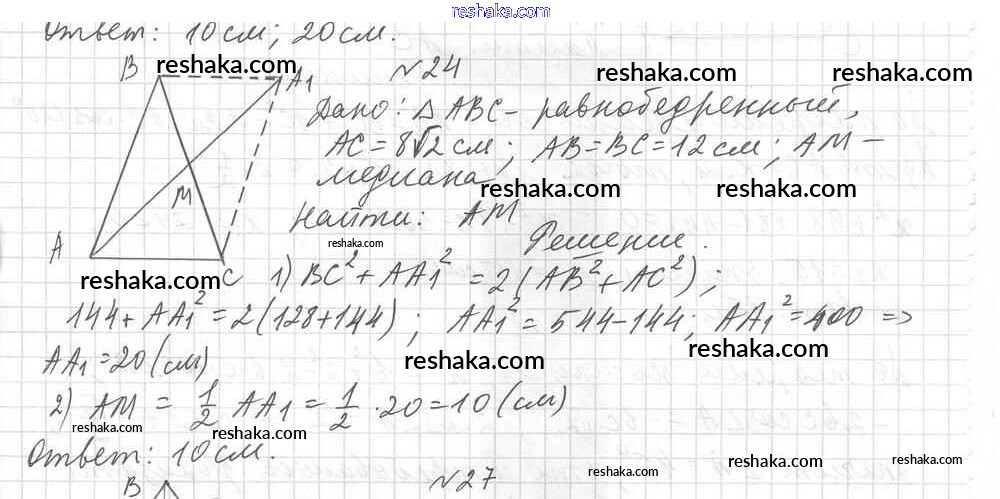 reshaka.com
Ответ: 10 см; 20 см.
B reshaka.com A₁ №24 reshaka.com reshaka.com
Дано: △ ABC – равнобедренный,
AC = 8√2 см; AB = BC = 12 см; AM –
медиана reshaka.com reshaka.com
M
Найти: AM
reshaka.com Решение.
A reshaka.com C 1) BC² + AA₁² = 2(AB² + AC²);
144 + AA₁² = 2(128 + 144); AA₁² = 544 – 144; AA₁² = 400 =>
AA₁ = 20 (см) reshaka.com reshaka.com
2) AM = 1/2 AA₁ = 1/2 · 20 = 10 (см)
reshaka.com reshaka.com
Ответ: 10 см.
reshaka.com reshaka.com reshaka.com
B №27